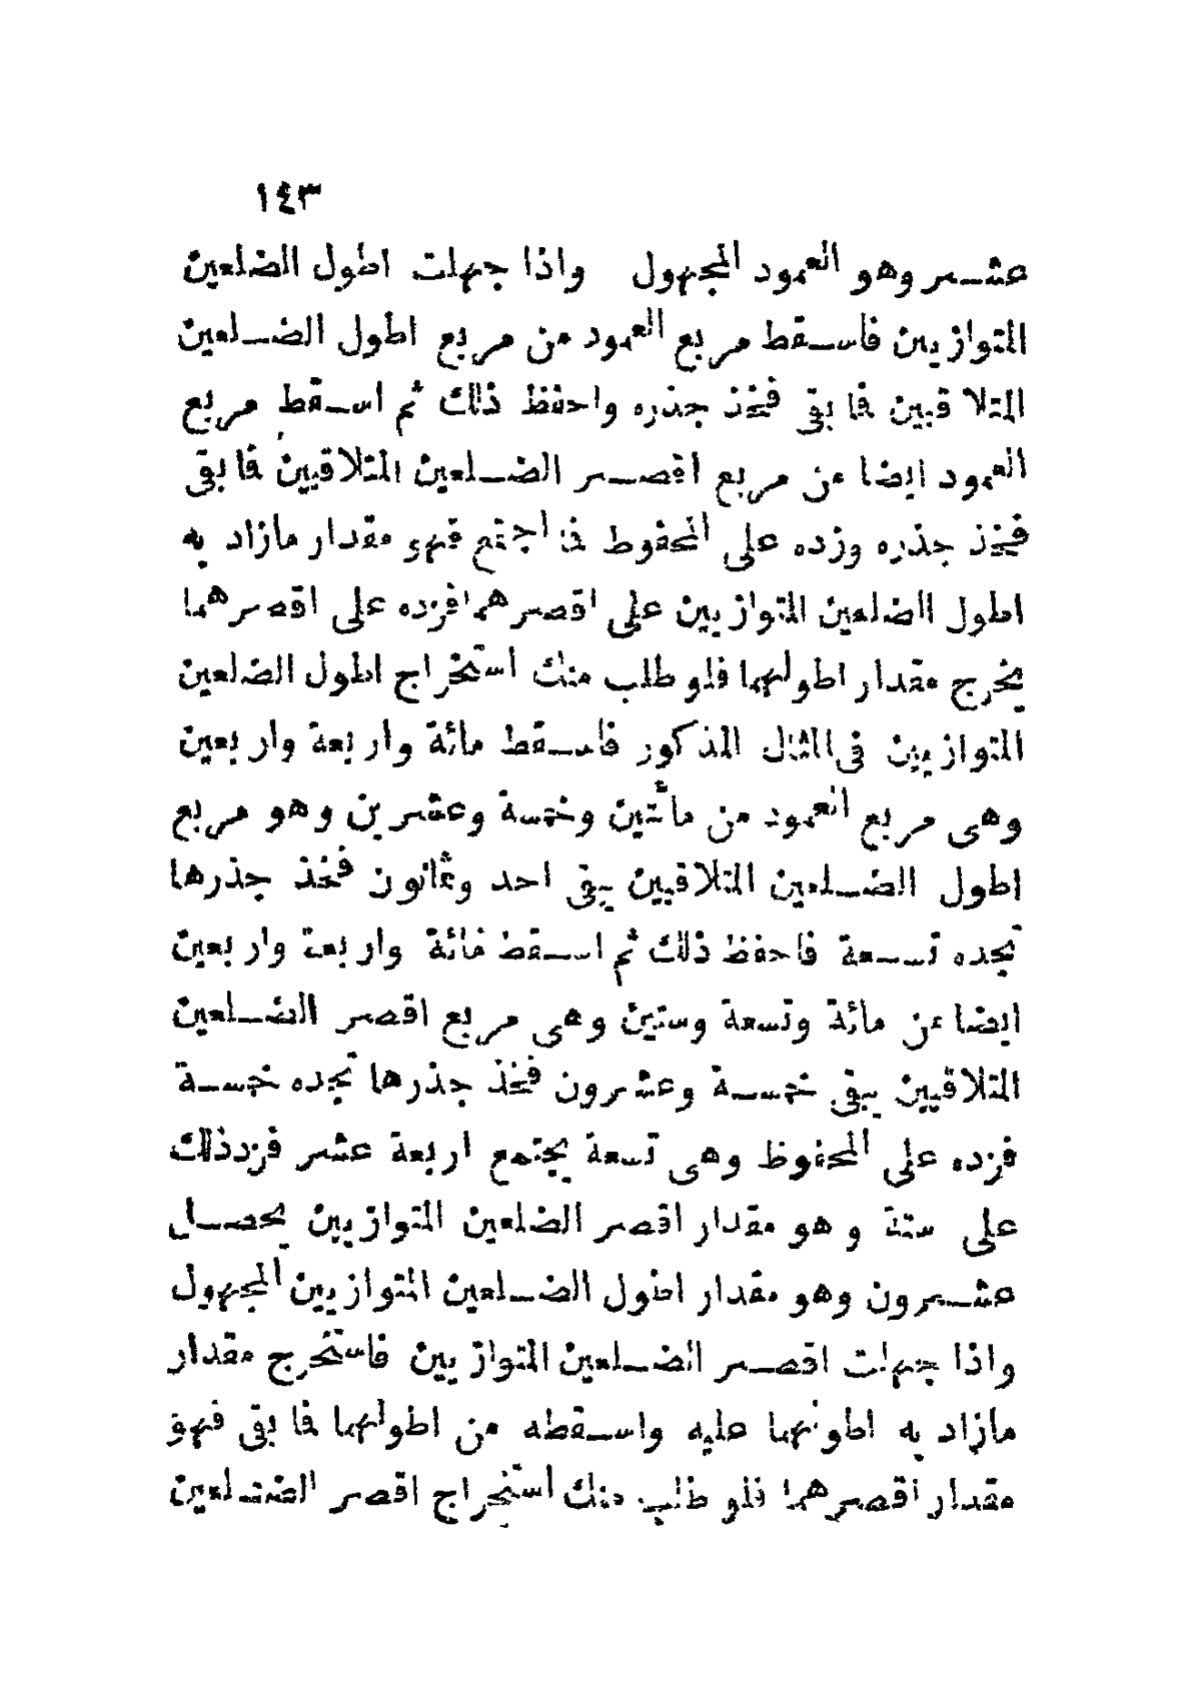 ١٤٣
عشـر وهو العمود المجهول واذا جهلت اطول الضلعين
المتوازيين فاسـقط مربع العمود من مربع اطول الضـلعين
المتلاقيين فما بقى فخذ جذره واحفظ ذلك ثم اسـقط مربع
العمود ايضا من مربع اقصـر الضـلعين المتلاقيين فما بقى
فخذ جذره وزده على المحفوظ فما اجتمع فهو مقدار مازاد به
اطول الضلعين المتوازيين على اقصرهما فزده على اقصرهما
يخرج مقدار اطولهما فلو طلب منك استخراج اطول الضلعين
المتوازيين فى المثال المذكور فاسـقط مائة واربعة واربعين
وهى مربع العمود من مأتين وخمسة وعشرين وهو مربع
اطول الضـلعين المتلاقيين يبقى احد وثمانون فخذ جذرها
تجده تسـعة فاحفظ ذلك ثم اسـقط مائة واربعة واربعين
ايضا من مائة وتسعة وستين وهى مربع اقصر الضـلعين
المتلاقيين يبقى خمسـة وعشرون فخذ جذرها تجده خمسـة
فزده على المحفوظ وهى تسعة يجتمع اربعة عشر فزدذلك
على ستة وهو مقدار اقصر الضلعين المتوازيين يحصـل
عشـرون وهو مقدار اطول الضـلعين المتوازيين المجهول
واذا جهلت اقصـر الضـلعين المتوازيين فاستخرج مقدار
مازاد به اطولهما عليه واسـقطه من اطولهما فما بقى فهو
مقدار اقصرهما فلو طلب منك استخراج اقصر الضـلعين